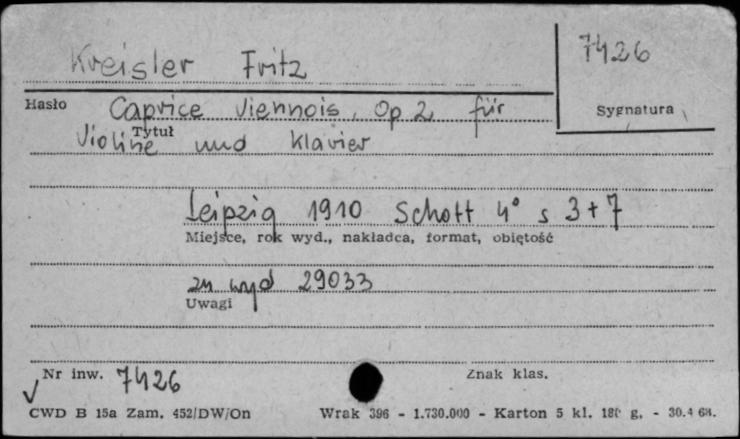 Kreisler Fritz
7426
Hasło
Sygnatura
Caprice Viennois, Op 2 für
Tytuł
Violine und Klavier
Leipzig 1910 Schott 4° s 3+7
Miejsce, rok wyd., nakładca, format, objętość
zn wyd 29033
Uwagi
Nr inw. 7426
Znak klas.
CWD B 15a Zam. 452/DW/On Wrak 396 - 1.730.000 - Karton 5 kl. 180 g. - 30.4 68.